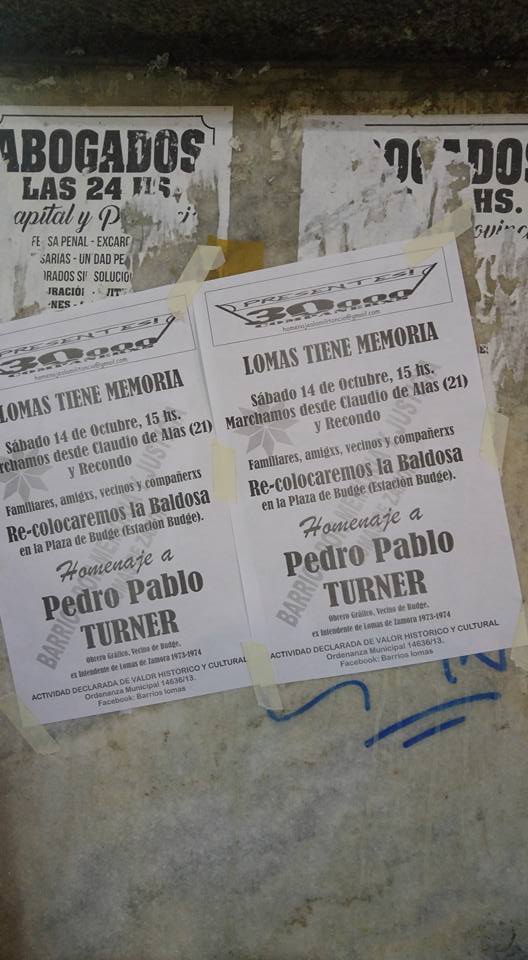 ABOGADOS
LAS 24 HS.
apital y P
SA PENAL - EXCARC
SARIAS - UN DAD PE
ORADOS SI SOLUCIO
URACIÓ
NES -
OGADOS
HS.
PRESENTES!
30000
COMPAÑERXS
homenajealamilitancia@gmail.com
LOMAS TIENE MEMORIA
Sábado 14 de Octubre, 15 hs.
rchamos desde Claudio de Alas (21)
y Recondo
Familiares, amigxs, vecinos y compañerxs
Re-colocaremos la Baldosa
en la Plaza de Budge (Estación Budge).
Homenaje a
Pedro Pablo
TURNER
Obrero Gráfico, Vecino de Budge,
ex Intendente de Lomas de Zamora 1973-1974
ACTIVIDAD DECLARADA DE VALOR HISTORICO Y CULTURAL
Ordenanza Municipal 14636/13.
Facebook: Barrios lomas
PRESENTES!
30000
COMPAÑERXS
homenajealamilitancia@gmail.com
LOMAS TIENE MEMORIA
Sábado 14 de Octubre, 15 hs.
Marchamos desde Claudio de Alas (21)
y Recondo
Familiares, amigxs, vecinos y compañerxs
Re-colocaremos la Baldosa
en la Plaza de Budge (Estación Budge).
Homenaje a
Pedro Pablo
TURNER
Obrero Gráfico, Vecino de Budge,
ex Intendente de Lomas de Zamora 1973-1974
ACTIVIDAD DECLARADA DE VALOR HISTORICO Y CULTURAL
Ordenanza Municipal 14636/13.
Facebook: Barrios lomas